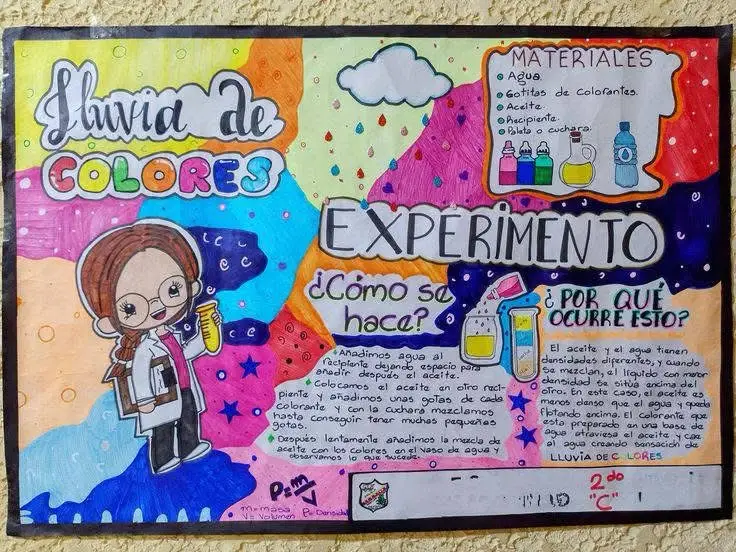 Lluvia de
COLORES
MATERIALES
Agua.
Gotitas de Colorantes.
Aceite.
Recipiente.
Paleta o cuchara.
EXPERIMENTO
¿Cómo se
hace?
Añadimos agua al
recipiente dejando espacio para
añadir después el aceite.
Colocamos el aceite en otro reci-
piente y añadimos unas gotas de cada
colorante y con la cuchara mezclamos
hasta conseguir tener muchas pequeñas
gotas.
Después lentamente añadimos la mezcla de
aceite con los colores en el vaso de agua y
observamos lo que sucede.
¿POR QUÉ
OCURRE ESTO?
El aceite y el agua tienen
densidades diferentes, y cuando
se mezclan, el líquido con menor
densidad se sitúa encima del
otro. En este caso, el aceite es
menos denso que el agua y queda
flotando encima. El colorante que
esta preparado en una base de
agua atraviesa el aceite y cae
al agua creando sensación de
LLUVIA DE COLORES
P=m/V
m=masa
V=Volumen P=Densidad
2do
"C"